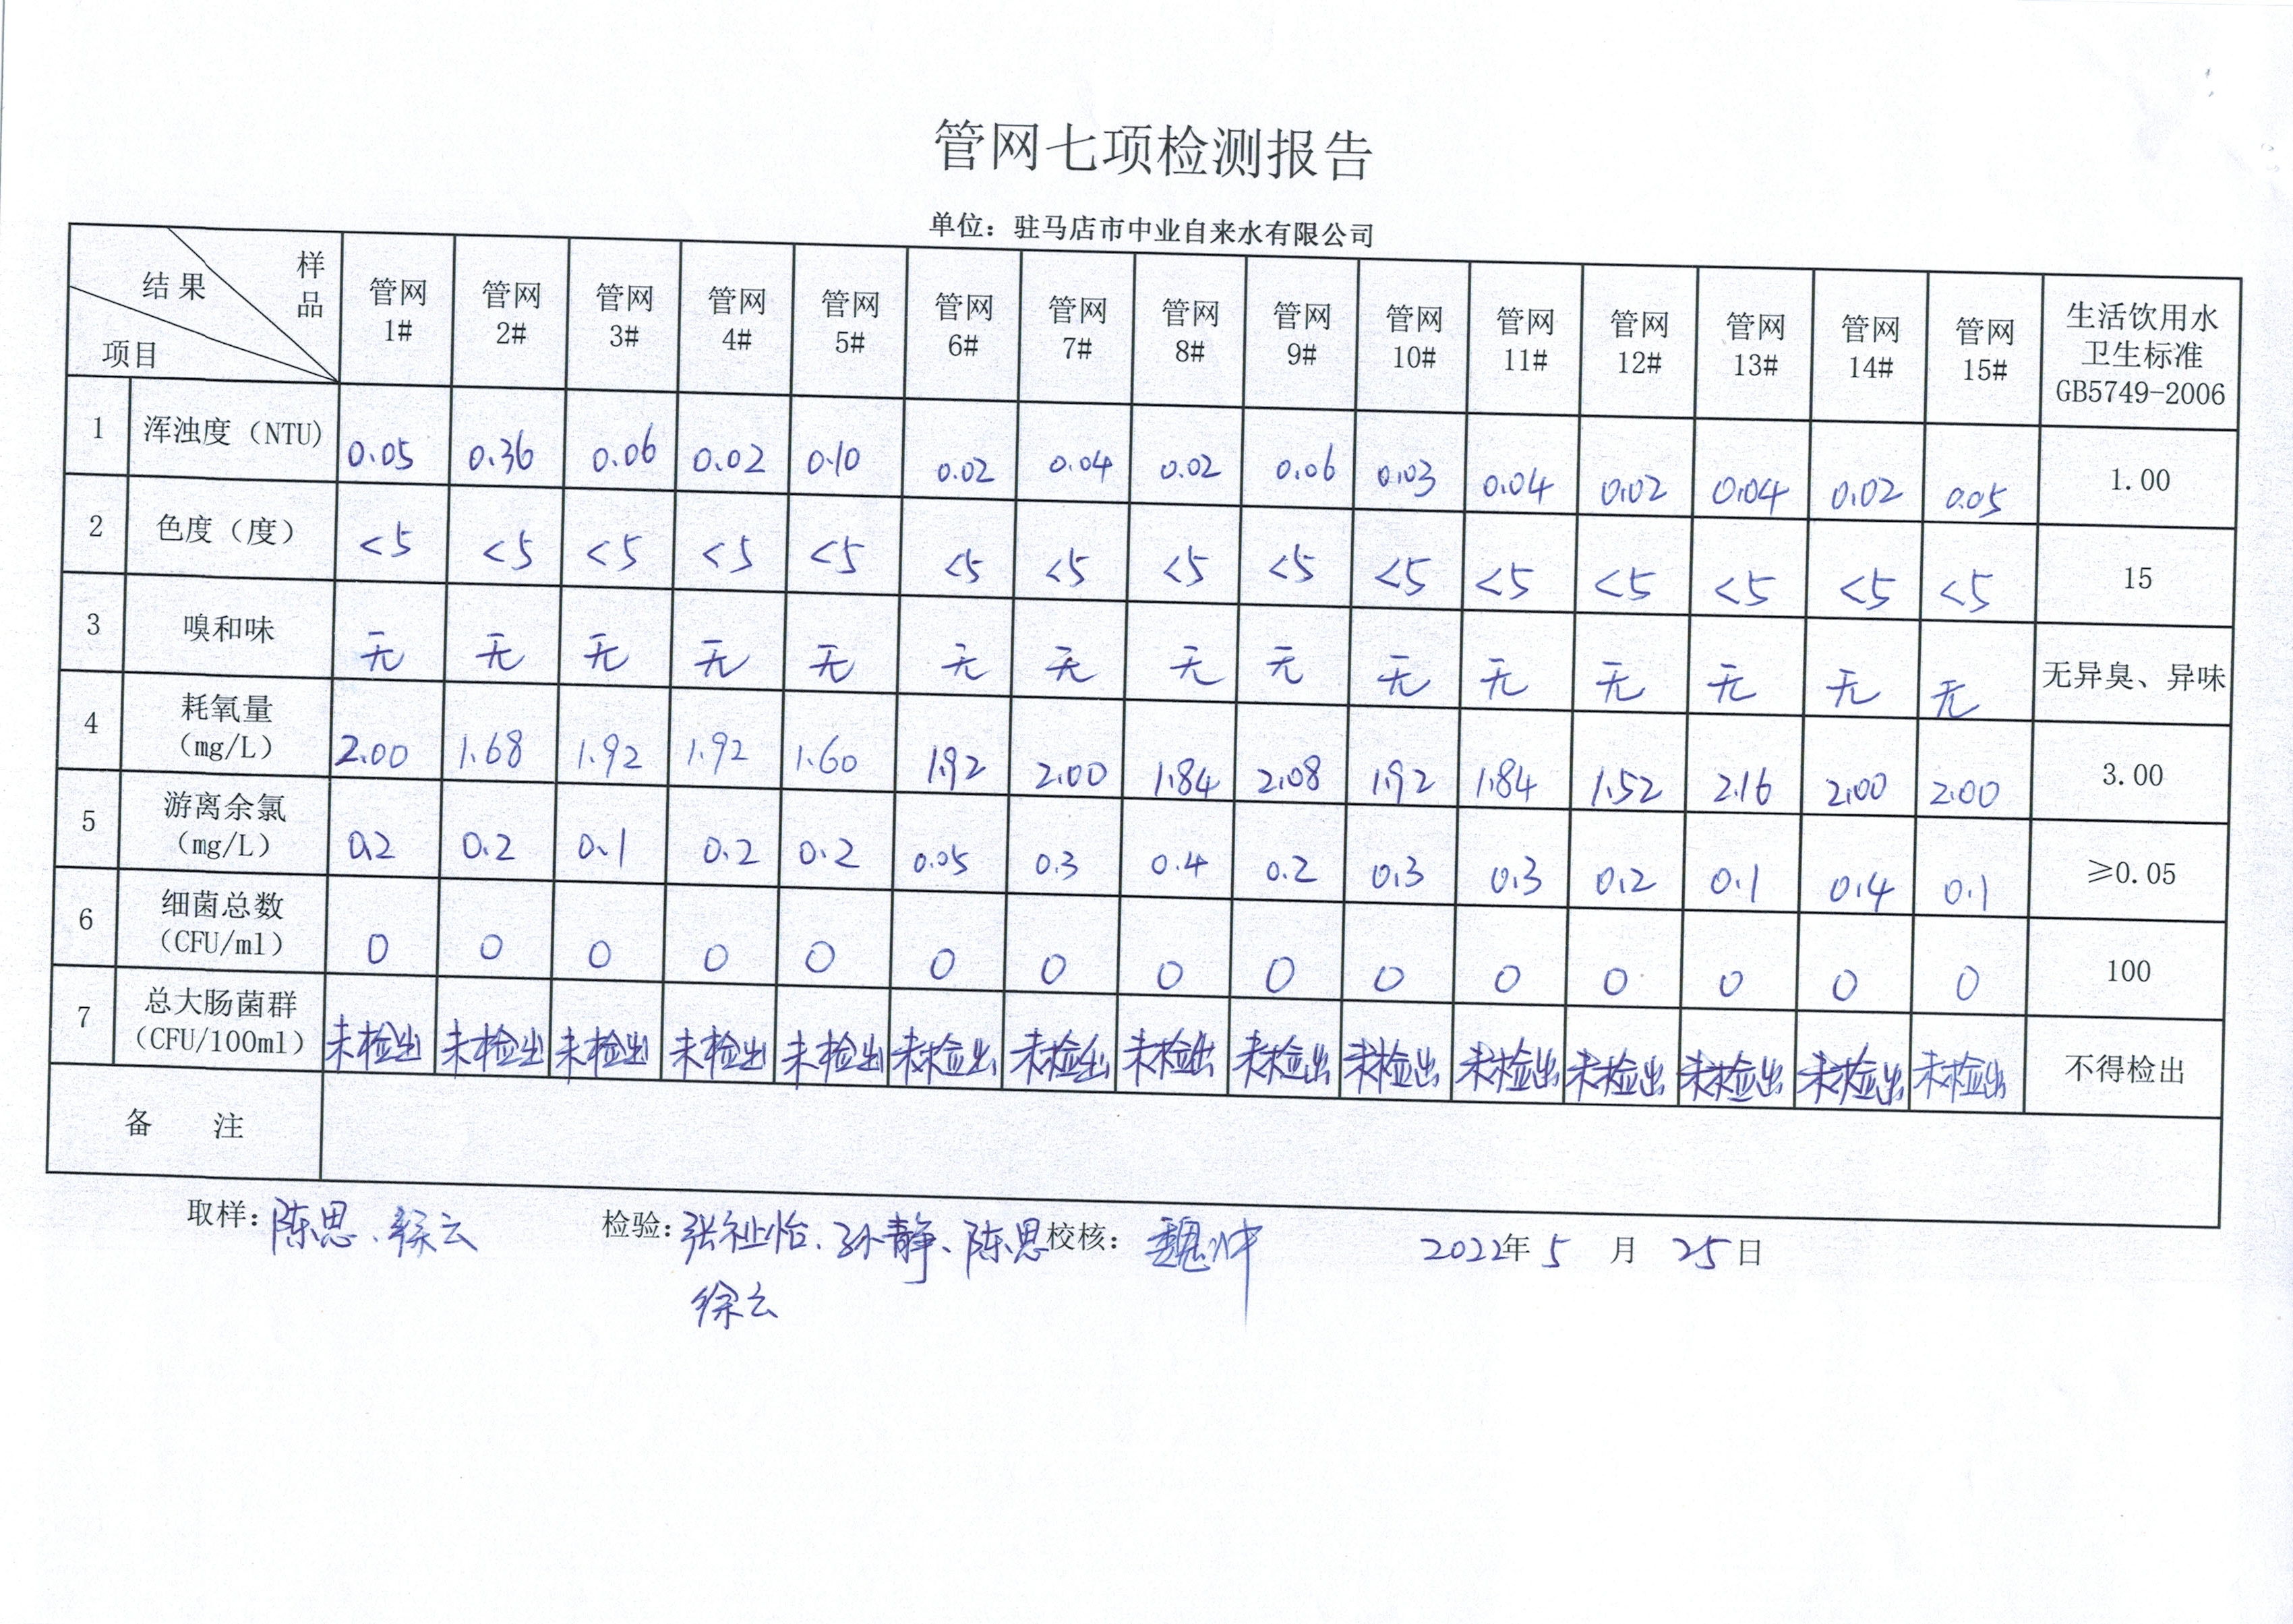 管网七项检测报告
单位：驻马店市中业自来水有限公司
结果 样品 项目 管网1# 管网2# 管网3# 管网4# 管网5# 管网6# 管网7# 管网8# 管网9# 管网10# 管网11# 管网12# 管网13# 管网14# 管网15# 生活饮用水卫生标准GB5749-2006
1 浑浊度（NTU) 0.05 0.36 0.06 0.02 0.10 0.02 0.04 0.02 0.06 0.03 0.04 0.02 0.04 0.02 0.05 1.00
2 色度（度） <5 <5 <5 <5 <5 <5 <5 <5 <5 <5 <5 <5 <5 <5 <5 15
3 嗅和味 无 无 无 无 无 无 无 无 无 无 无 无 无 无 无 无异臭、异味
4 耗氧量（mg/L） 2.00 1.68 1.92 1.92 1.60 1.92 2.00 1.84 2.08 1.92 1.84 1.52 2.16 2.00 2.00 3.00
5 游离余氯（mg/L） 0.2 0.2 0.1 0.2 0.2 0.05 0.3 0.4 0.2 0.3 0.3 0.2 0.1 0.4 0.1 ≥0.05
6 细菌总数（CFU/ml） 0 0 0 0 0 0 0 0 0 0 0 0 0 0 0 100
7 总大肠菌群（CFU/100ml） 未检出 未检出 未检出 未检出 未检出 未检出 未检出 未检出 未检出 未检出 未检出 未检出 未检出 未检出 未检出 不得检出
备 注
取样：陈思、徐云 检验：张祉怡、孙静、陈思 校核：魏冲 2022年5月25日
徐云